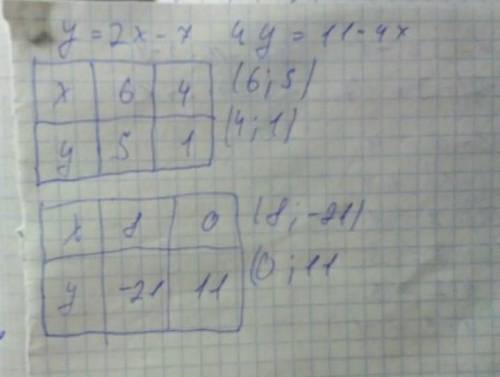 y = 2x - 7 4 y = 11 - 4x
x 6 4 (6; 5)
y 5 1 (4; 1)
x 8 0 (8; -21)
y -21 11 (0; 11